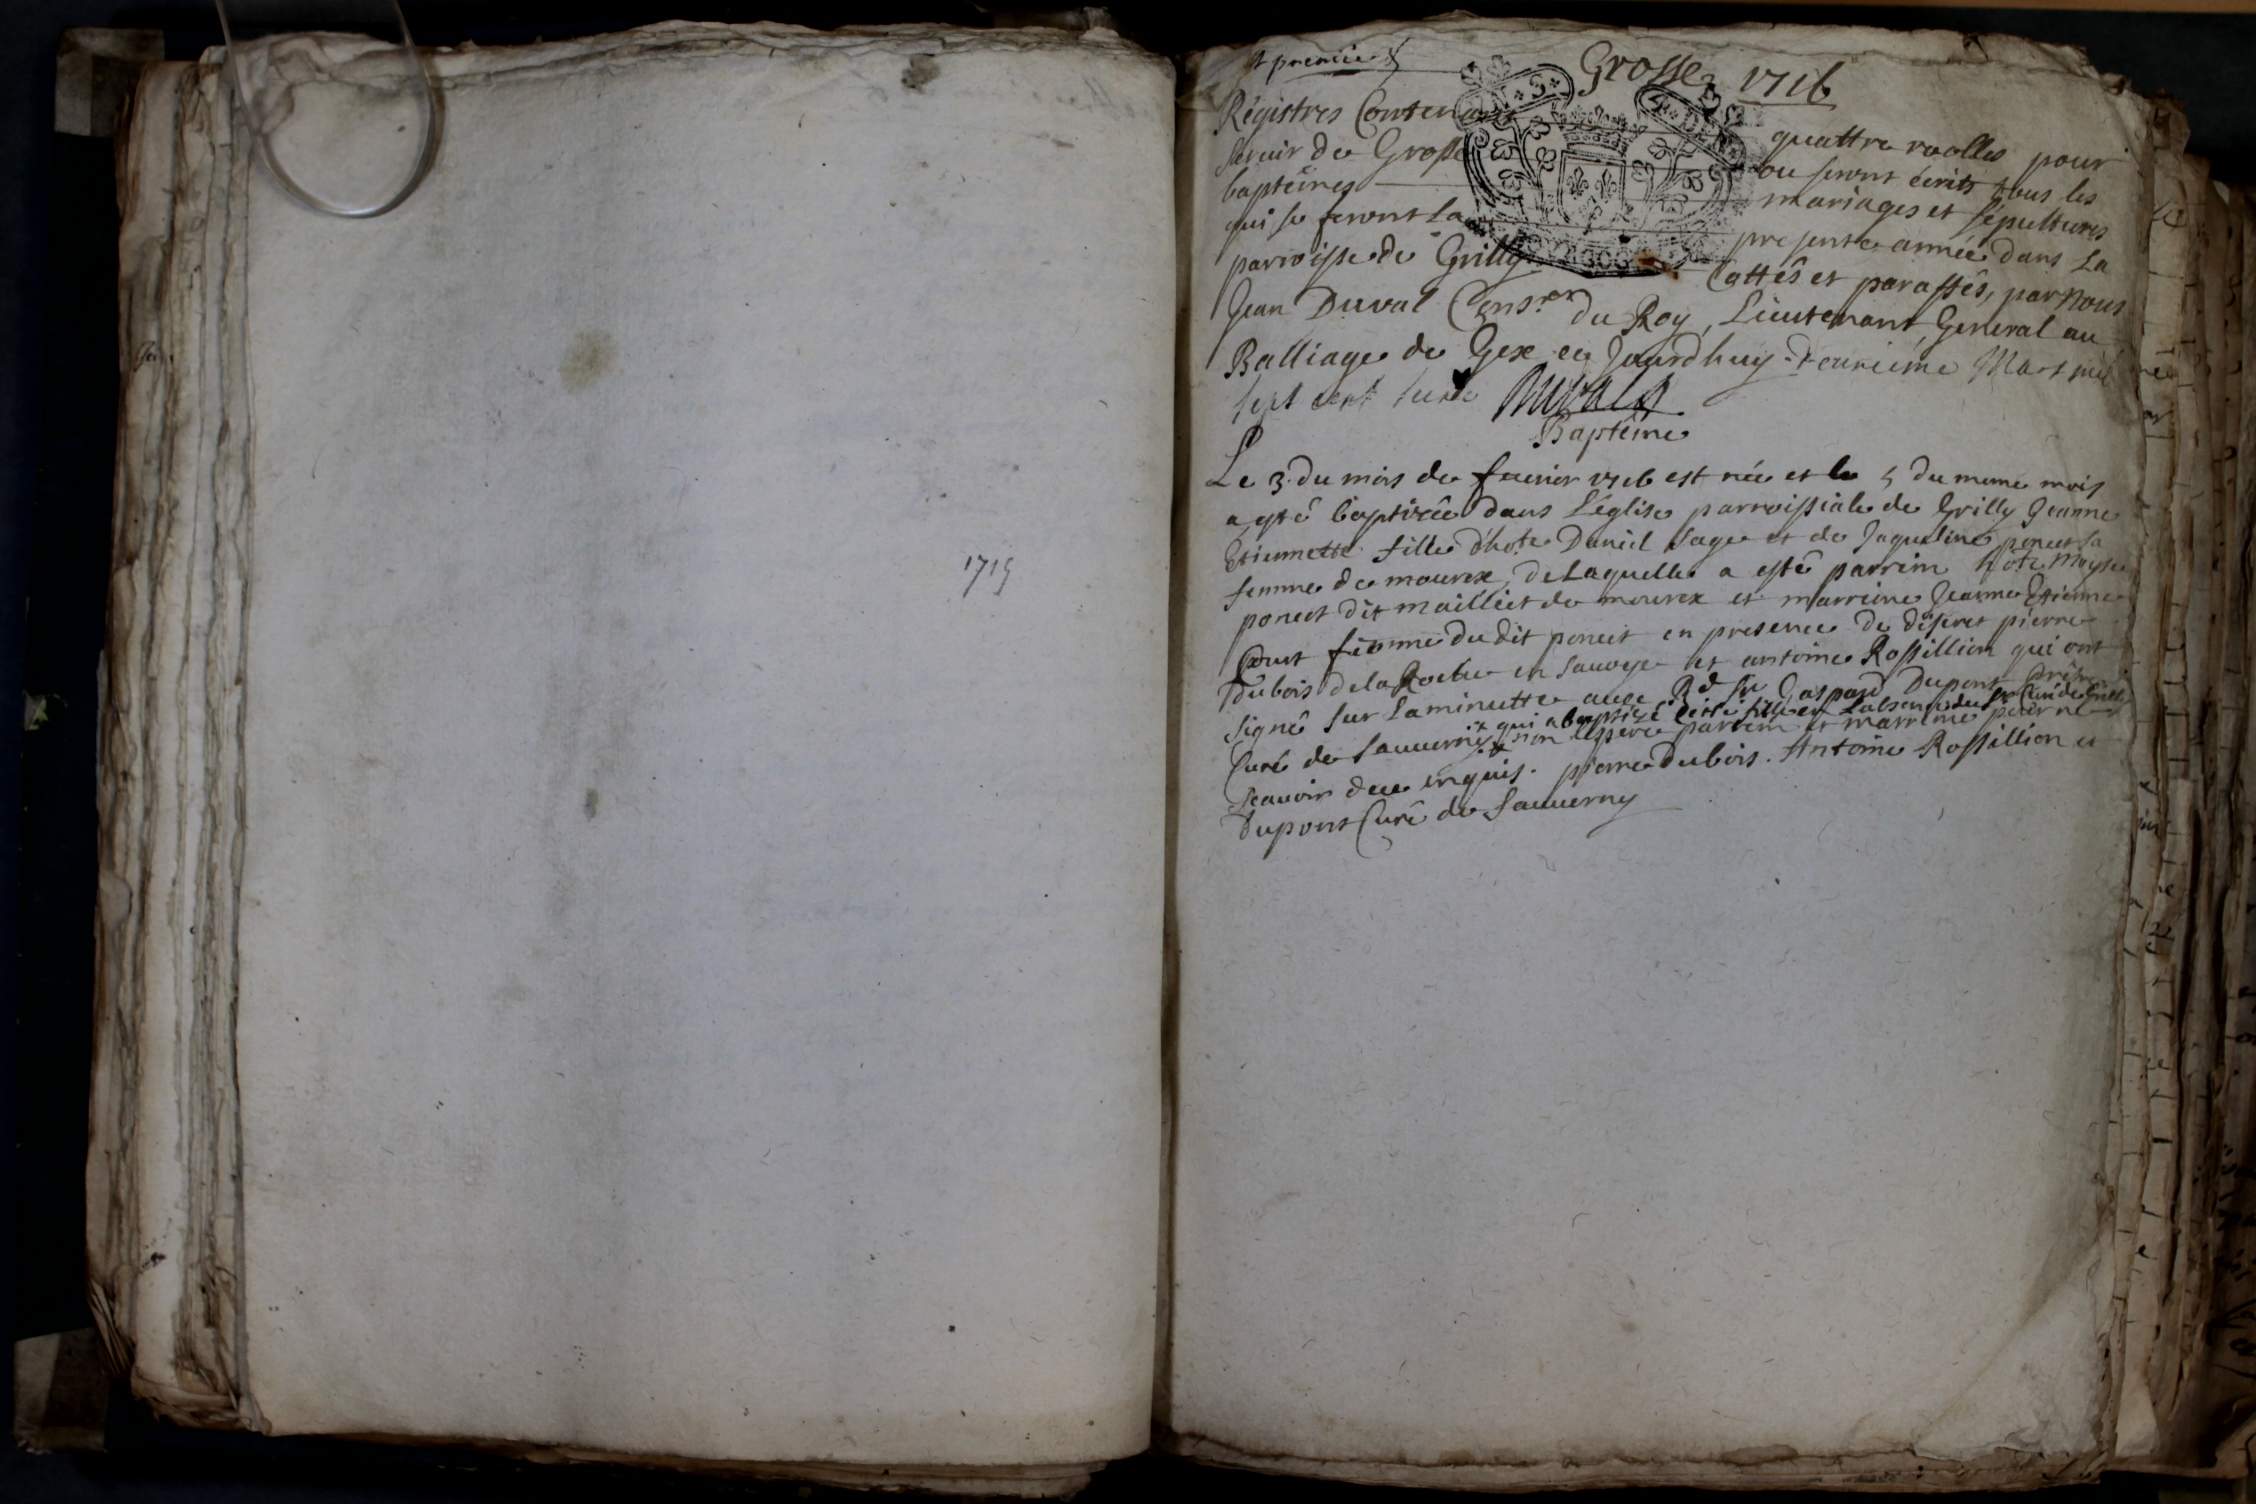 1715
& premier
Grosse 1716
Régistres Contenant quattre roolles pour
servir de Grosse ou seront écrits tous les
baptêmes mariages et sépultures
qui se feront la presente année dans La
parroisse de Grilly Cottés et paraffés, par Nous
Jean Duval Cons.er du Roy, Lieutenant General au
Balliage de Gex ce Jourdhuy Mars mil
sept cent seize Duval
Baptême
Le 3 du mois de feurier 1716 est née et le 5 du meme mois
a esté baptisée dans L'église parroissiale de Grilly Jeanne
Etiennette fille d'ho.te Daniel Sage et de Jaqueline poncet sa
femme de mourex, de Laquelle a esté parrein ho.te Moyse
poncet dit mailliet de mourex et marreine Jeanne Etienne
femme du dit poncet en presence de discret pierre
Dubois de la Roche en Sauoye et antoine Rossillion qui ont
signé sur La minutte auec R.d Sr Gaspard Dupont prêtre
Curé de Sauuerny × qui a baptizé cette fille en Labsence du Sr Curé de Grilly
non le père parrein et marreine pour ne
scauoir de ce enquis. pierre Dubois. Antoine Rossillion et
Dupont Curé de Sauuerny